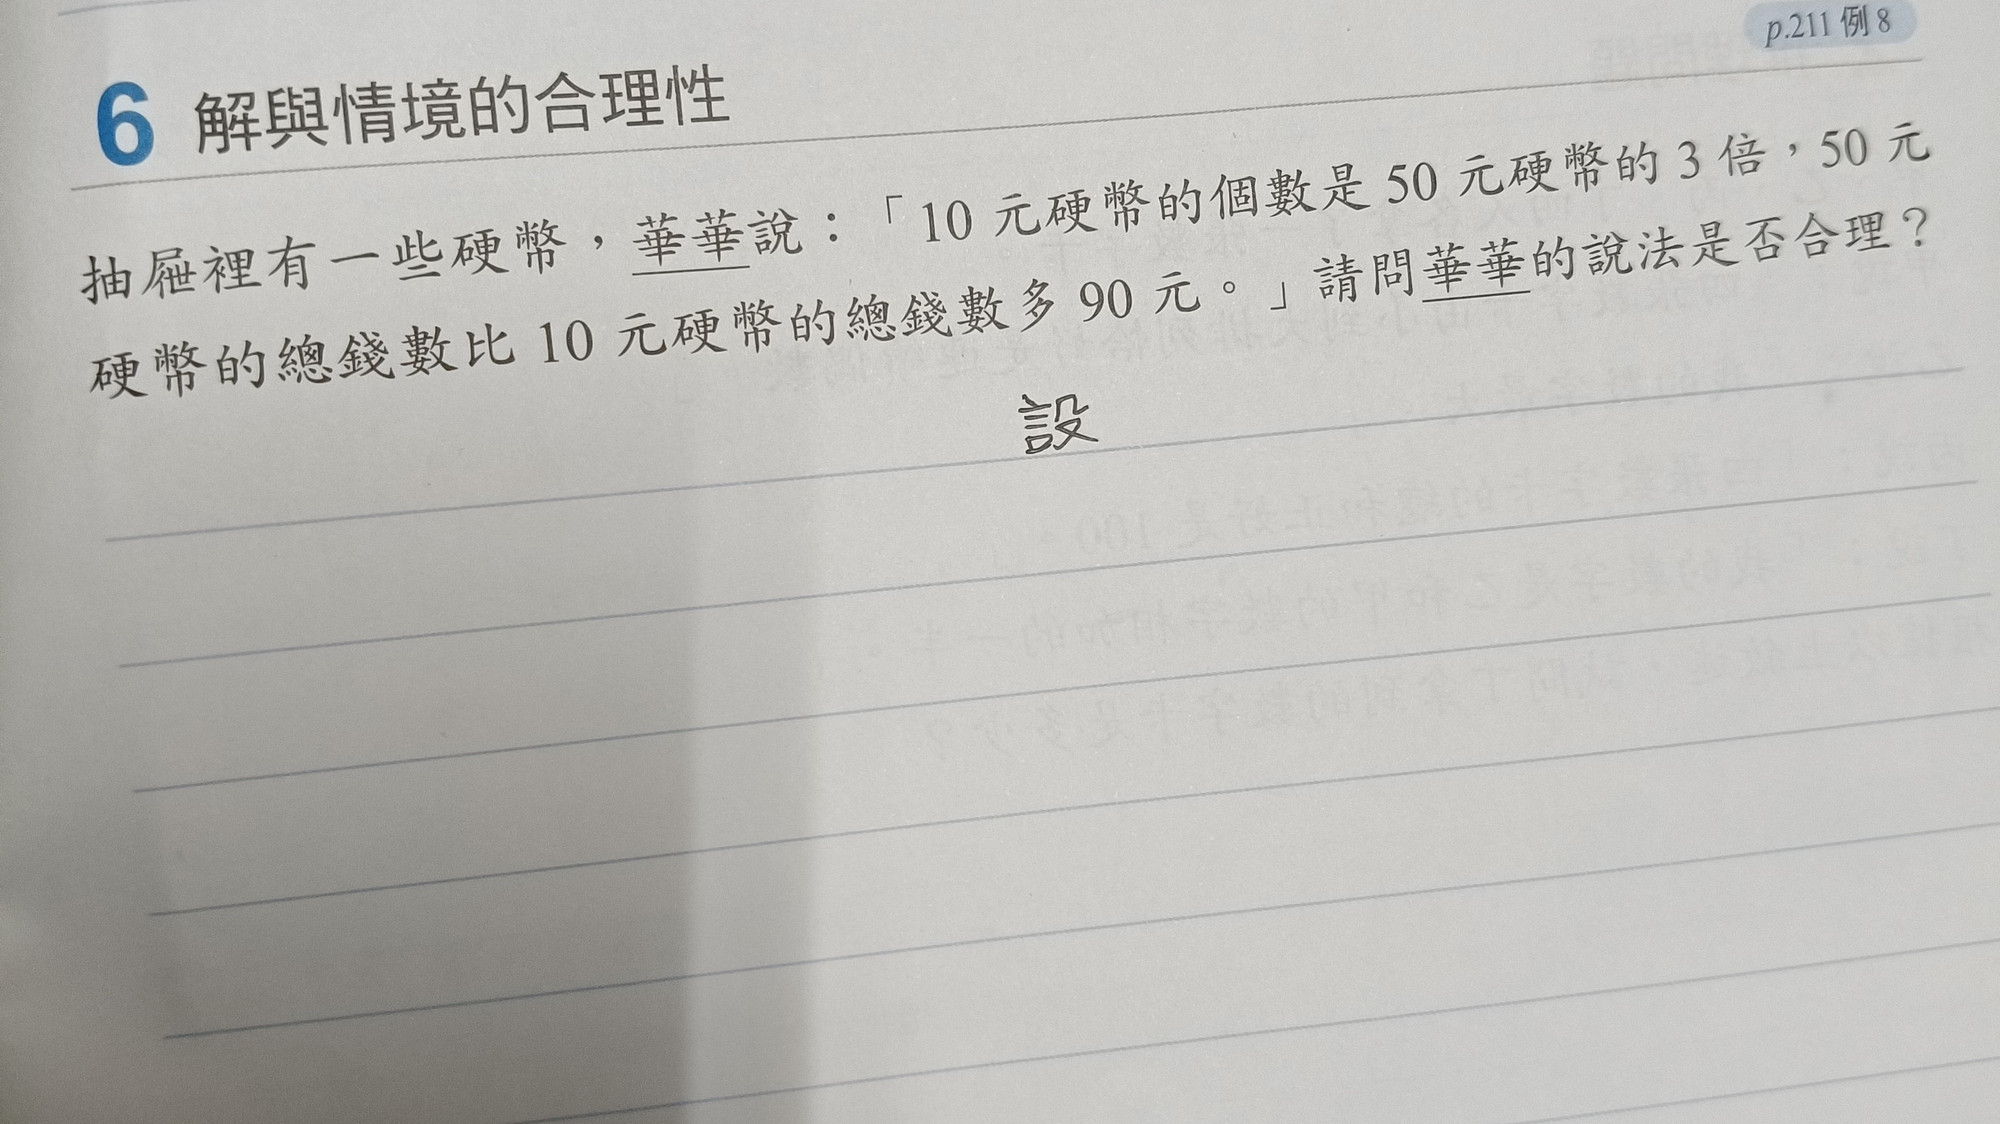 p.211 例 8
6 解與情境的合理性
抽屜裡有一些硬幣，華華說：「10 元硬幣的個數是 50 元硬幣的 3 倍，50 元
硬幣的總錢數比 10 元硬幣的總錢數多 90 元。」請問華華的說法是否合理？
設